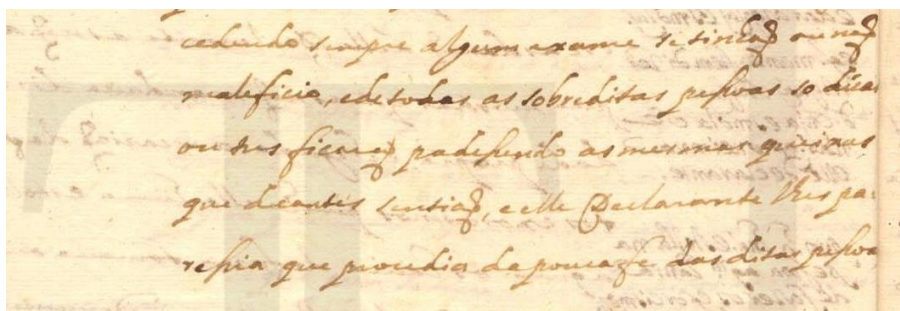 cedendo sempre algum exame se tinhaõ ou naõ
maleficio, e de todas as sobreditas pessoas so duas
ou tres ficaraõ padessendo as mesmas queixas
que deantes sentiaõ, e elle Declarante lhes pa-
ressia que procedia da pouca fe das ditas pessoas